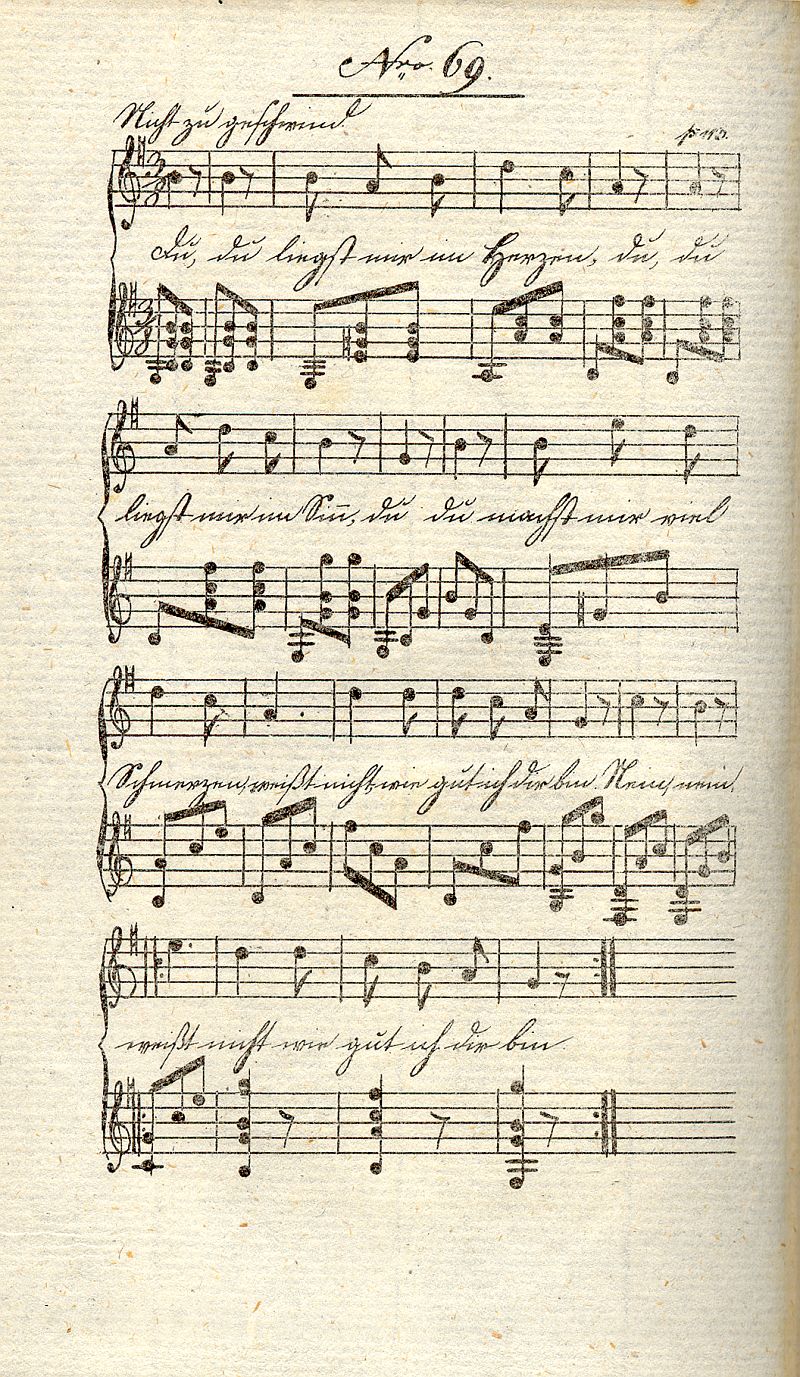 Nro. 69.
Nicht zu geschwind
p 113.
Du, du liegst mir im Herzen, du, du
liegst mir im Sin̄, du du machst mir viel
Schmerzen, weißt nicht wie gut ich dir bin. Nein, nein,
weißt nicht wie gut ich dir bin.